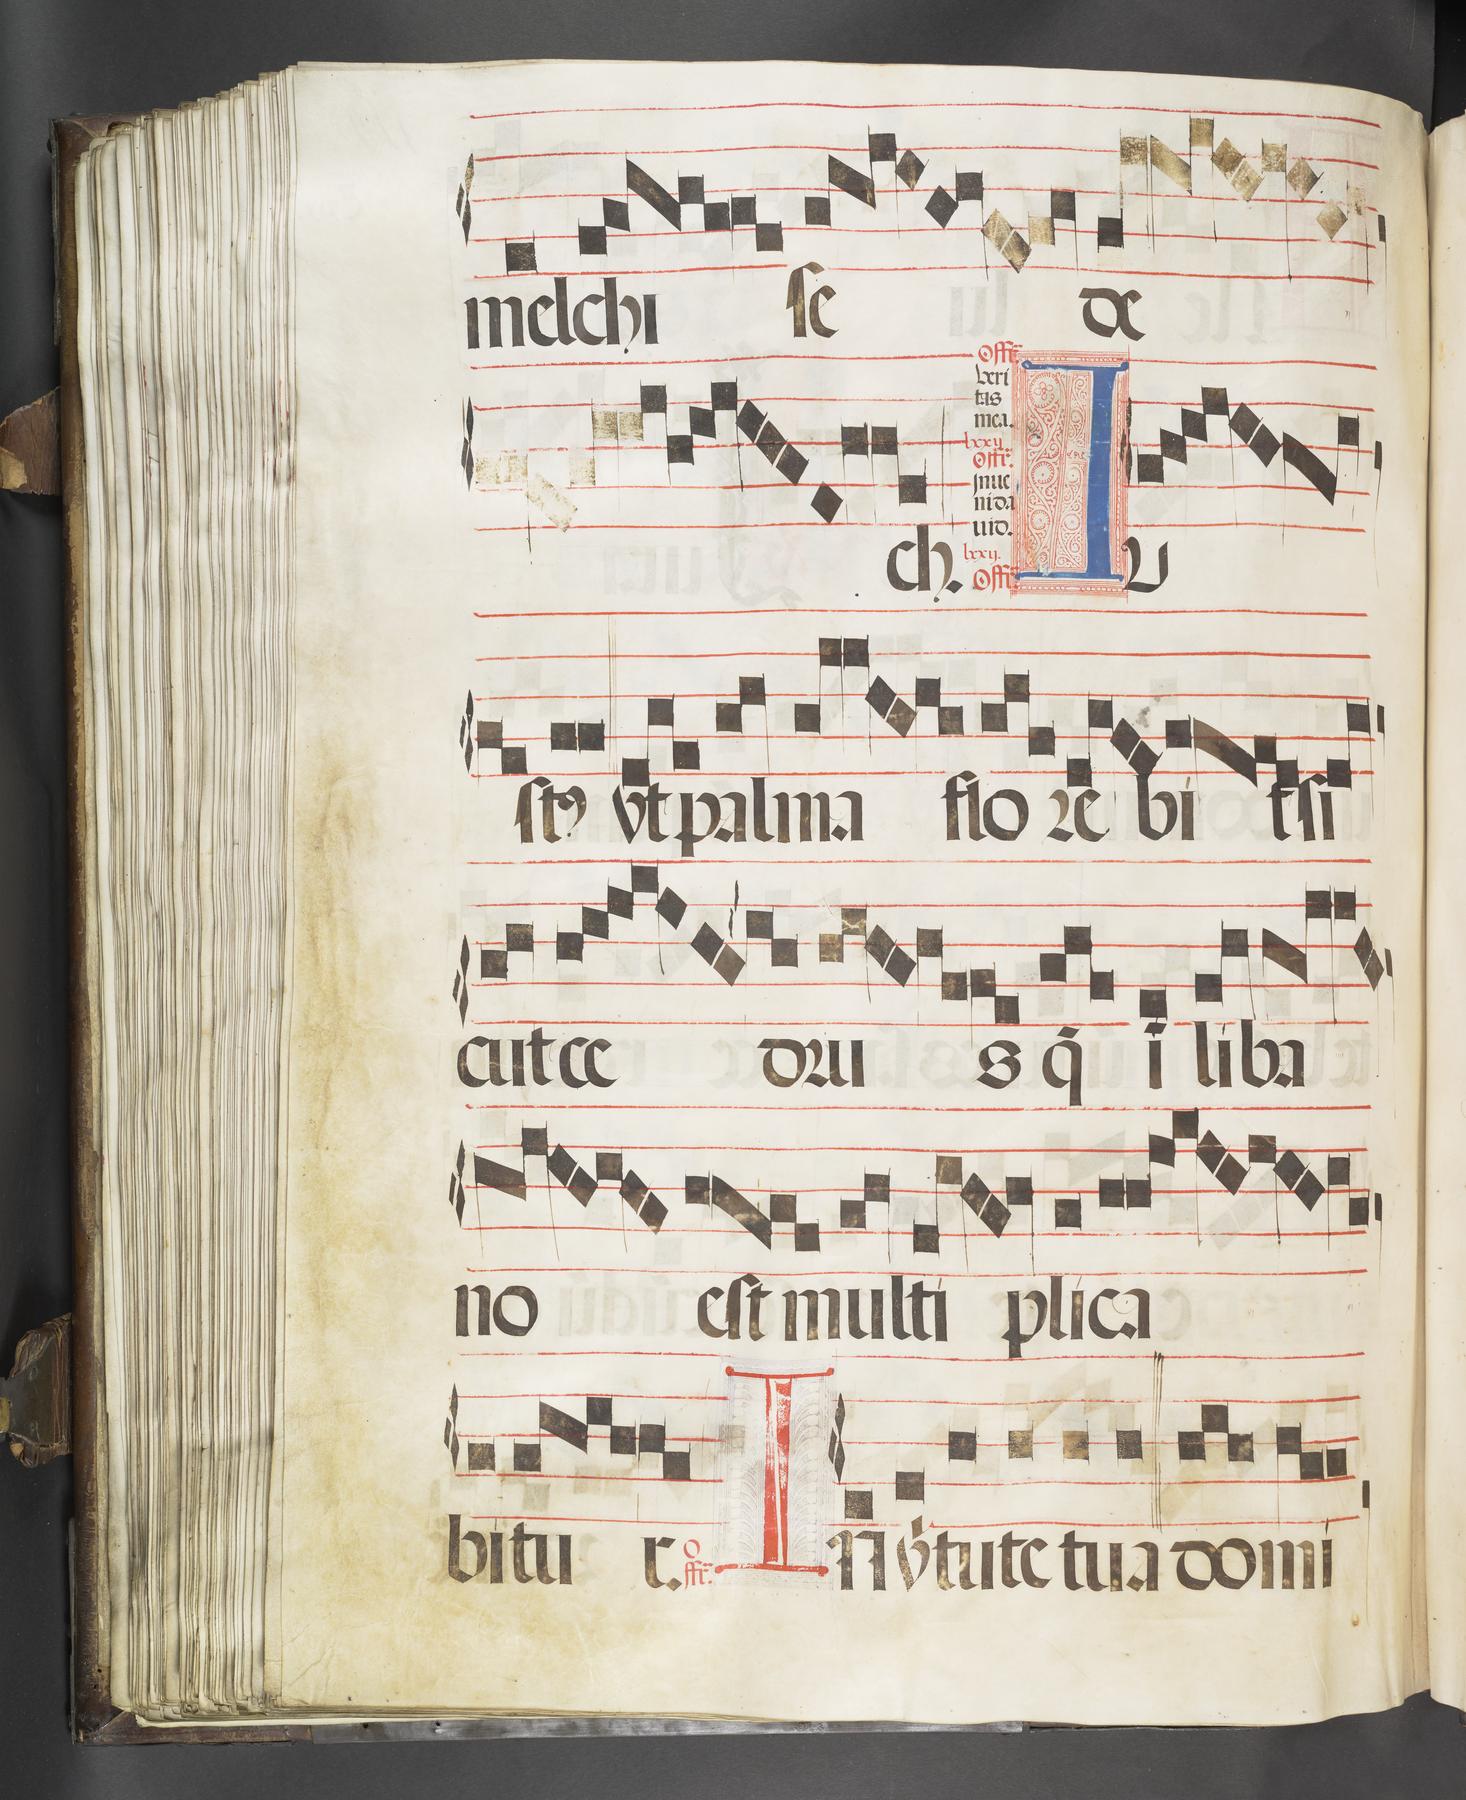 melchi se de
Offr̄. veri tas mea. lxxij
Offr̄. Inue ni da uid. lxxij.
ch. Offr̄. IU
stꝰ vt palma flo re bi t si
cut ce dru s q̄ i liba
no est multi plica
bitu r. Offr̄. IN v̇tute tua domi